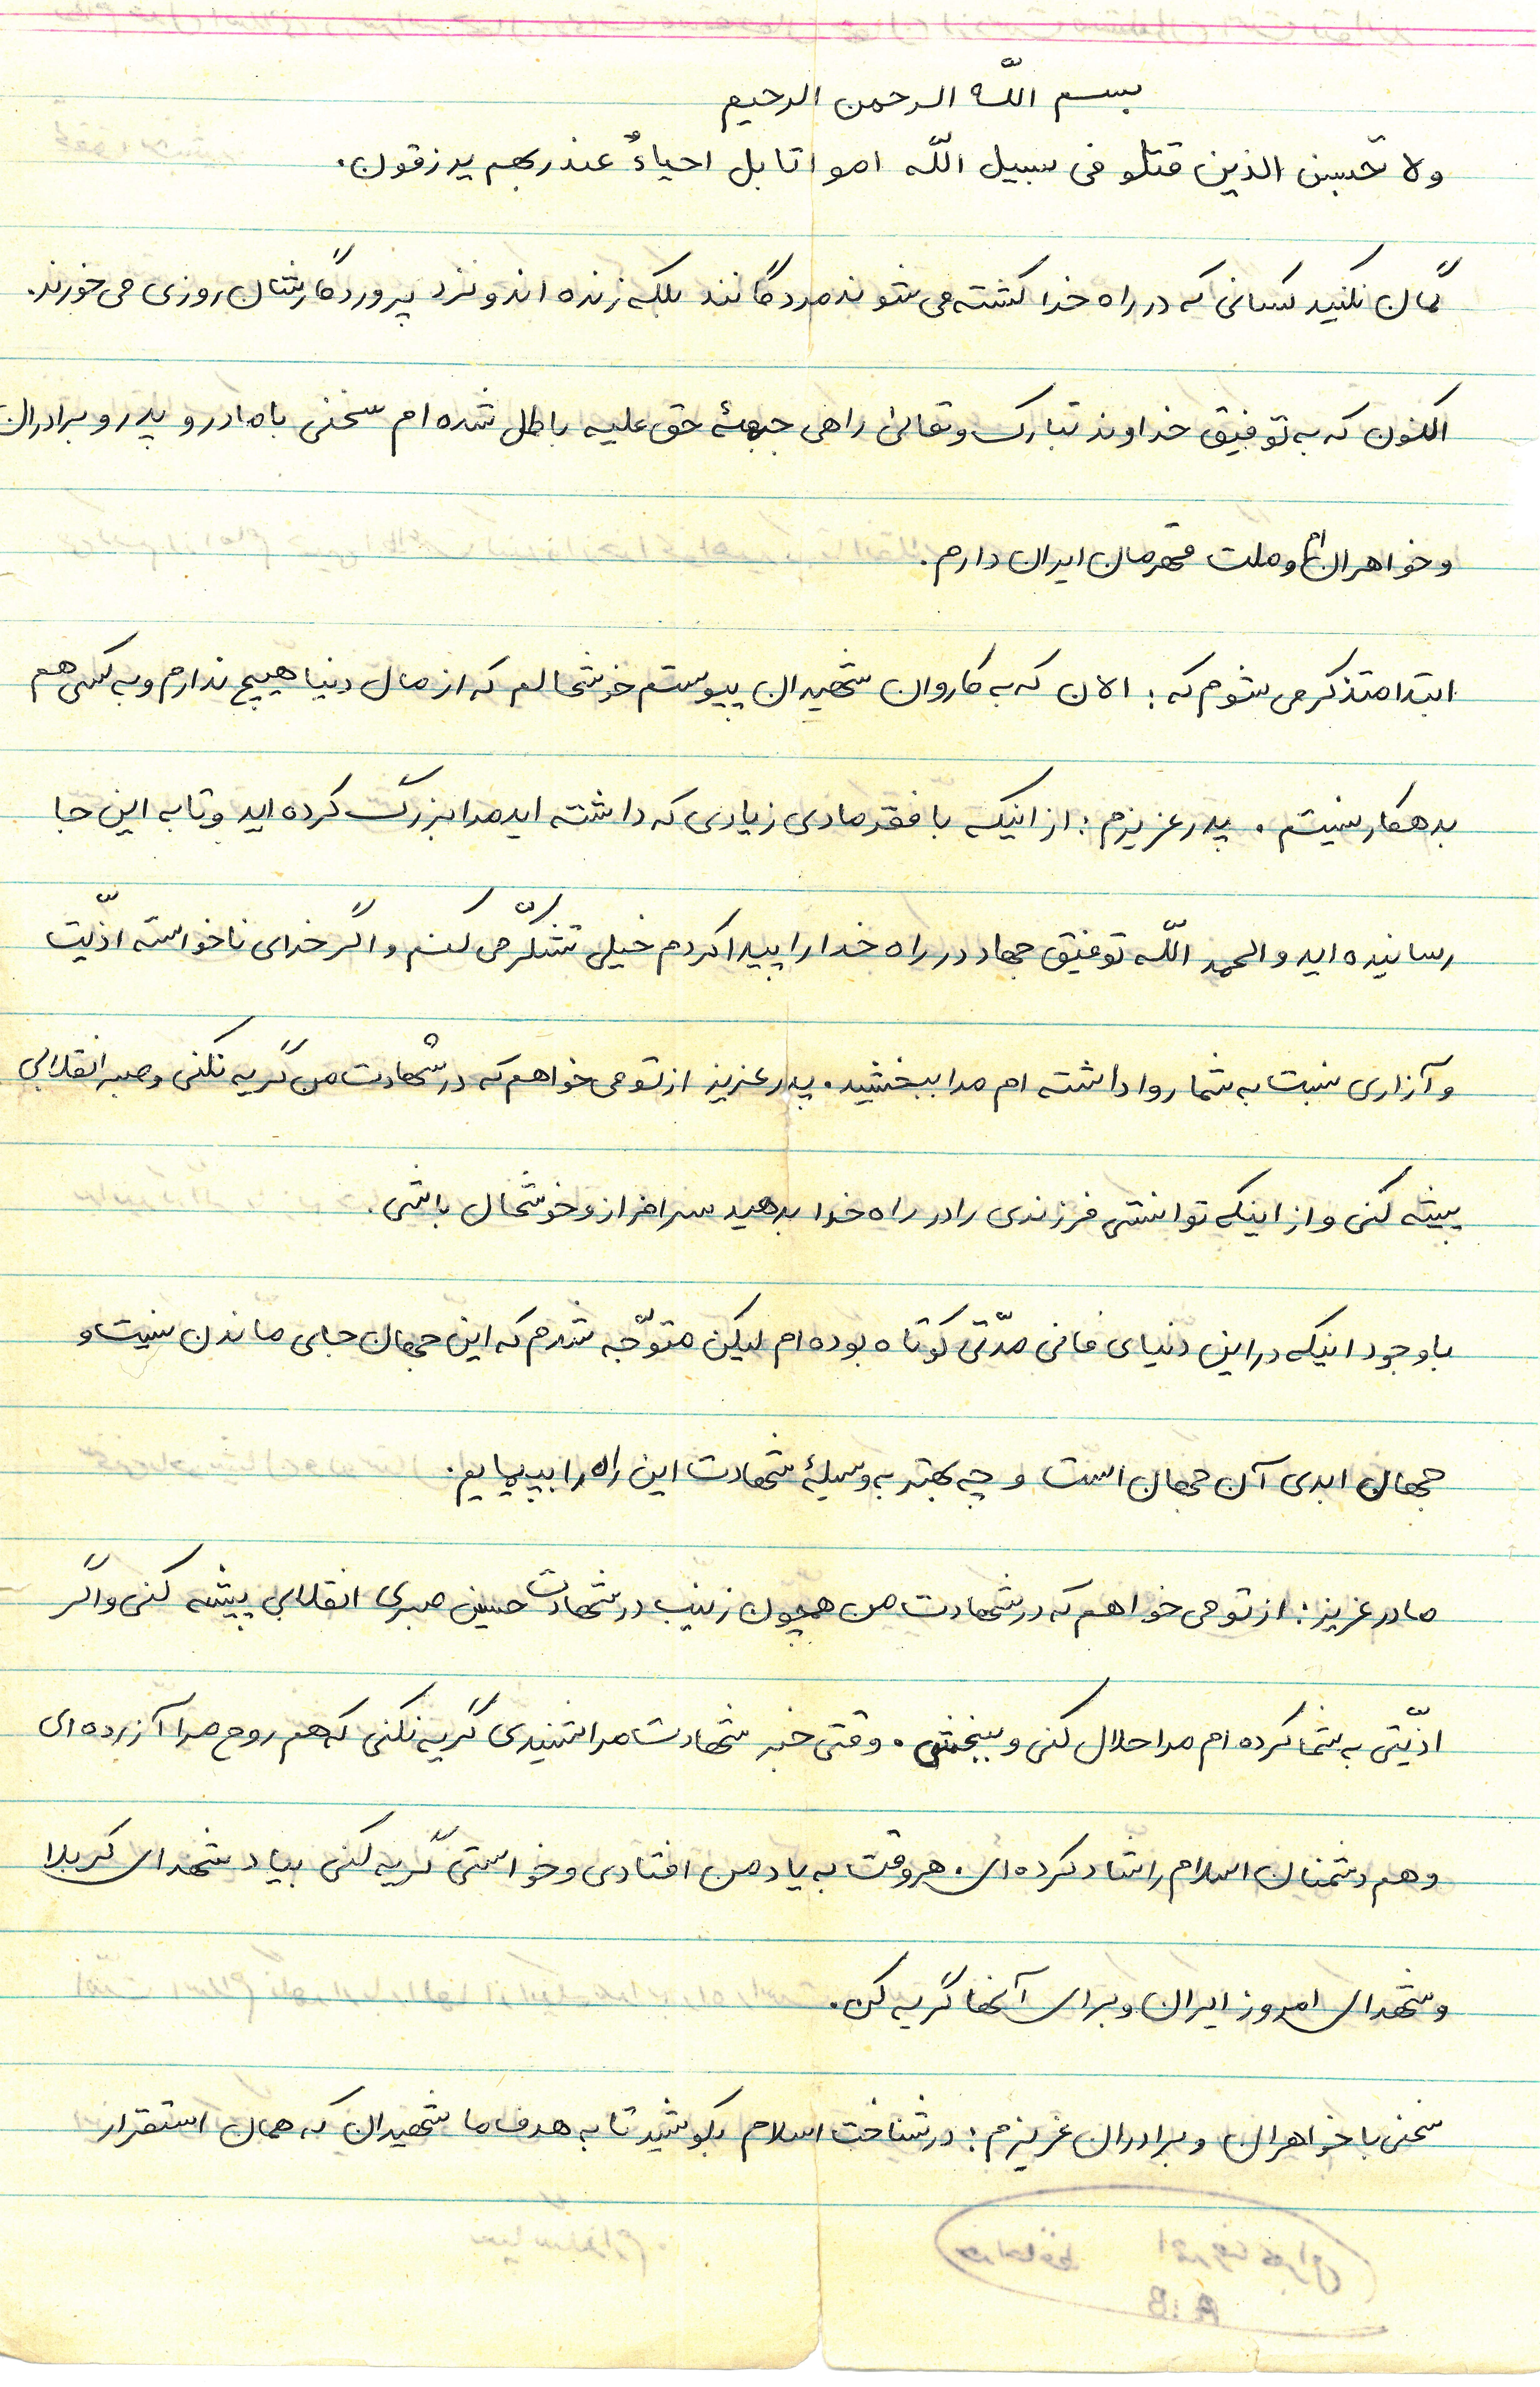 بسم اللّه الرحمن الرحیم
ولا تحسبن الذین قتلو فی سبیل اللّه امواتا بل احیاءٌ عند ربهم یرزقون.
گمان نکنید کسانی که در راه خدا کشته می شوند مردگانند بلکه زنده اند و نزد پروردگارشان روزی می خورند.
اکنون که به توفیق خداوند تبارک وتعالی راهی جبههٔ حق علیه باطل شده ام سخنی با مادر و پدر و برادران
و خواهرانم و ملت قهرمان ایران دارم.
ابتدا متذکر می شوم که : الان که به کاروان شهیدان پیوستم خوشحالم که از مال دنیا هیچ ندارم و به کسی هم
بدهکار نیستم . پدر عزیزم : از اینکه با فقر مادی زیادی که داشته اید مرا بزرگ کرده اید و تا به این جا
رسانیده اید و الحمد اللّه توفیق جهاد در راه خدا را پیدا کردم خیلی تشکّر می کنم و اگر خدای ناخواسته اذّیت
و آزاری نسبت به شما روا داشته ام مرا ببخشید . پدر عزیز از تو می خواهم که در شهادت من گریه نکنی و صبر انقلابی
پیشه کنی و از اینکه توانستی فرزندی را در راه خدا بدهید سرافراز و خوشحال باشی .
با وجود اینکه در این دنیای فانی مدّتی کوتاه بوده ام لیکن متوّجه شدم که این جهان جای ماندن نیست و
جهان ابدی آن جهان است و چه بهتر به وسیلهٔ شهادت این راه را بپیمایم .
مادر عزیز : از تو می خواهم که در شهادت من همچون زینب در شهادت حسین صبری انقلابی پیشه کنی و اگر
اذّیتی به شما کرده ام مرا حلال کنی و ببخشی . وقتی خبر شهادت مرا شنیدی گریه نکنی که هم روح مرا آزرده ای
و هم دشمنان اسلام را شاد کرده ای . هر وقت به یاد من افتادی و خواستی گریه کنی بیاد شهدای کربلا
و شهدای امروز ایران و برای آنها گریه کن .
سخنی با خواهران و برادران عزیزم : در شناخت اسلام بکوشید تا به هدف ما شهیدان که همان استقرار